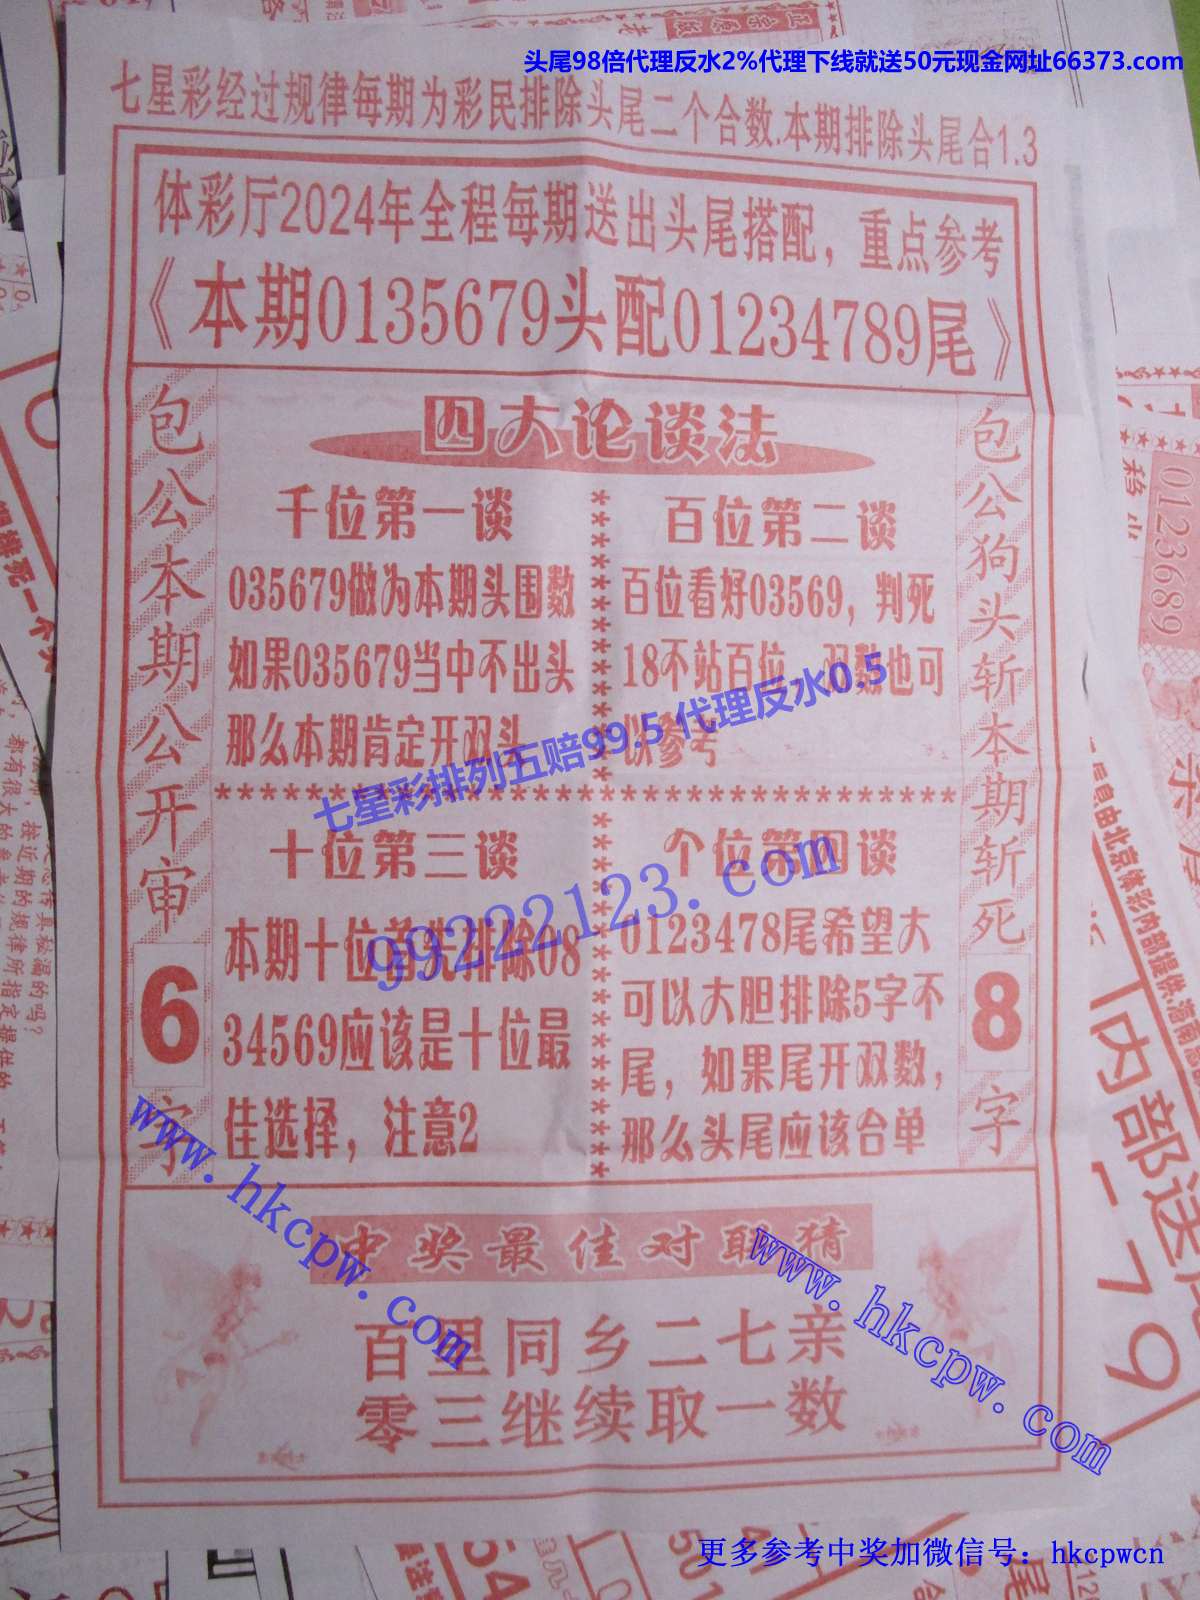 头尾98倍代理反水2%代理下线就送50元现金网址66373.com
七星彩经过规律每期为彩民排除头尾二个合数.本期排除头尾合1.3
体彩厅2024年全程每期送出头尾搭配，重点参考
《本期0135679头配01234789尾》
包公本期公开审
6
字
四大论谈法
千位第一谈
035679做为本期头围数
如果035679当中不出头
那么本期肯定开双头
百位第二谈
百位看好03569，判死
18不站百位，双数也可
以参考
七星彩排列五赔99.5 代理反水0.5
十位第三谈
本期十位首先排除08
34569应该是十位最
佳选择，注意2
个位第四谈
0123478尾希望大
可以大胆排除5字不
尾，如果尾开双数，
那么头尾应该合单
99222123.com
包公狗头斩本期斩死
8
字
www.hkcpw.com
中奖最佳对联猜
百里同乡二七亲
零三继续取一数
www.hkcpw.com
更多参考中奖加微信号：hkcpwcn
0123689
内部送
179